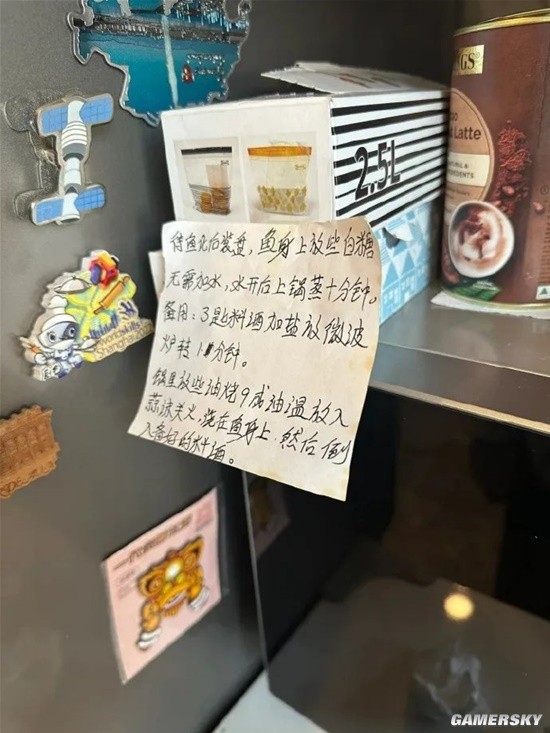 待鱼化后装盘,鱼身上放些白糖
无需加水,水开后上锅蒸十分钟。
备用:3匙料酒加盐放微波
炉转1分钟。
锅里放些油烧9成油温放入
蒜沫关火,浇在鱼身上.然后倒
入备好的料酒。
2.5L
Latte
worldskills
Shanghai
GAMERSKY